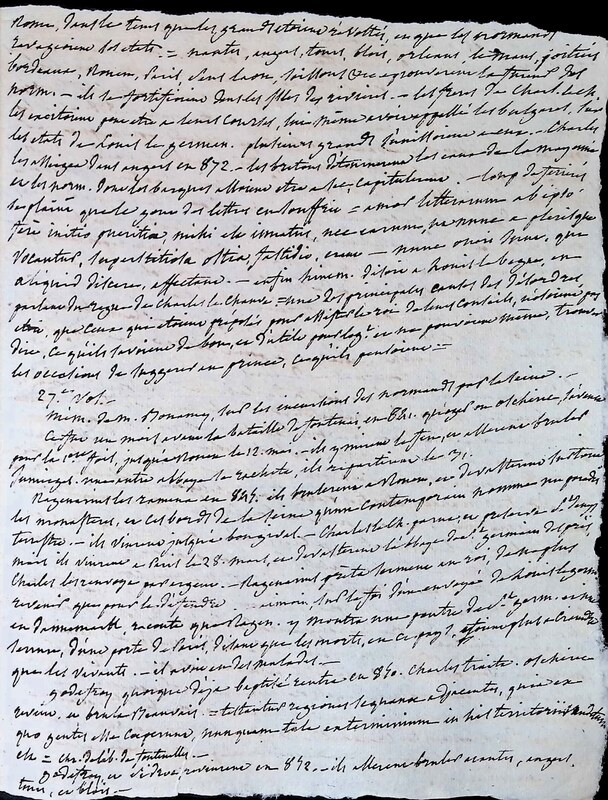 Rouen, dans le tems que les grands etoient révoltés, et que les normands
ravageoient les etats = nantes, angers, tours, blois, orleans, le mans, poitiers
bordeaux, Rouen, Paris, Sens, laon, soissons &c eprouverent la fureur des
norm. – ils se fortifioient dans les isles des rivieres. – les freres de Charl. le ch.
les excitoient peu etre a leurs courses, lui même avoit appellé les bulgares, sur
les etats de Louis le german. plusieurs grands s'unissoient a eux. – Charles
les assiegea dans angers en 872 – les bretons detournerent les eaux de la mayenne
et les norm. dont les barques alloient etre a sec, capitulerent – loup de ferrieres
se plaint que le gout des lettres est étouffé = amor litterarum ab ipso
fere initio pueritiæ mihi est innatus, nec earum, ut nunc a plerisque
vocantur, superstitiosa otia, fastidio, erant – nunc oneri sunt, qui
aliquid discere affectant – enfin hincm. disoit a Louis le begue, en
parlant du regne de Charles le chauve = une des principales causes des désordres
etoit, que ceux qui etoient préposés pour assister le roi de leurs conseils, n'osoient pas
dire, ce qu'ils savoient de bon, et d'utile pour l'egl. et ne pouvoient même, trouver
les occasions de suggerer au prince, ce qu'ils pensoient =
27.e Vol. –
Mem. de m. Bonamy, sur les incursions des normands par la seine. –
Ce fut un mois avant la bataille de fontenai en 841. qu'oger ou oscheric, s'avança
pour la 1ere fois, jusqu'à Rouen le 12. mai. – ils y mirent le feu, et allerent bruler
Jumieges. une autre abbaye se racheta, ils repartirent le 31.
Regenarius les ramena en 845. ils brulerent Rouen, et devasterent
les monasteres, et les bords de la seine qu'un contemporain nomme un paradis
terrestre. – ils vinrent jusqu'a bougival. – Charles le ch. parut, et se posta a St. Denys,
mais ils vinrent a Paris le 28. mars, et devasterent l'abbaye de St. germain des prés
Charles les renvoya par argent. – Regenarius prêta serment au roi, de ne plus
revenir que pour le défendre – aimoin, sur la foi d'un envoyé de Louis le germ.
en dannemarck raconte que Ragen. y montra une poutre de St. germ. et une
serrure, d'une porte de Paris, disant que les morts, en ce pays, etoient plus a craindre
que les vivants. – il avoit eu des malades. –
godefroy, quoique deja baptisé rentre en 850. Charles traite. oscheric
revient, et brule Beauvais. = testantur regiones sequanæ adjacentes, quia ex
quo gentes esse coeperunt, nunquam tale exterminium in his territoriis auditum
est = chr. de l'ab. de fontenelles. –
Godefroy, et sidroc, revinrent en 852. – ils allerent bruler nantes, angers,
tours, et blois. –